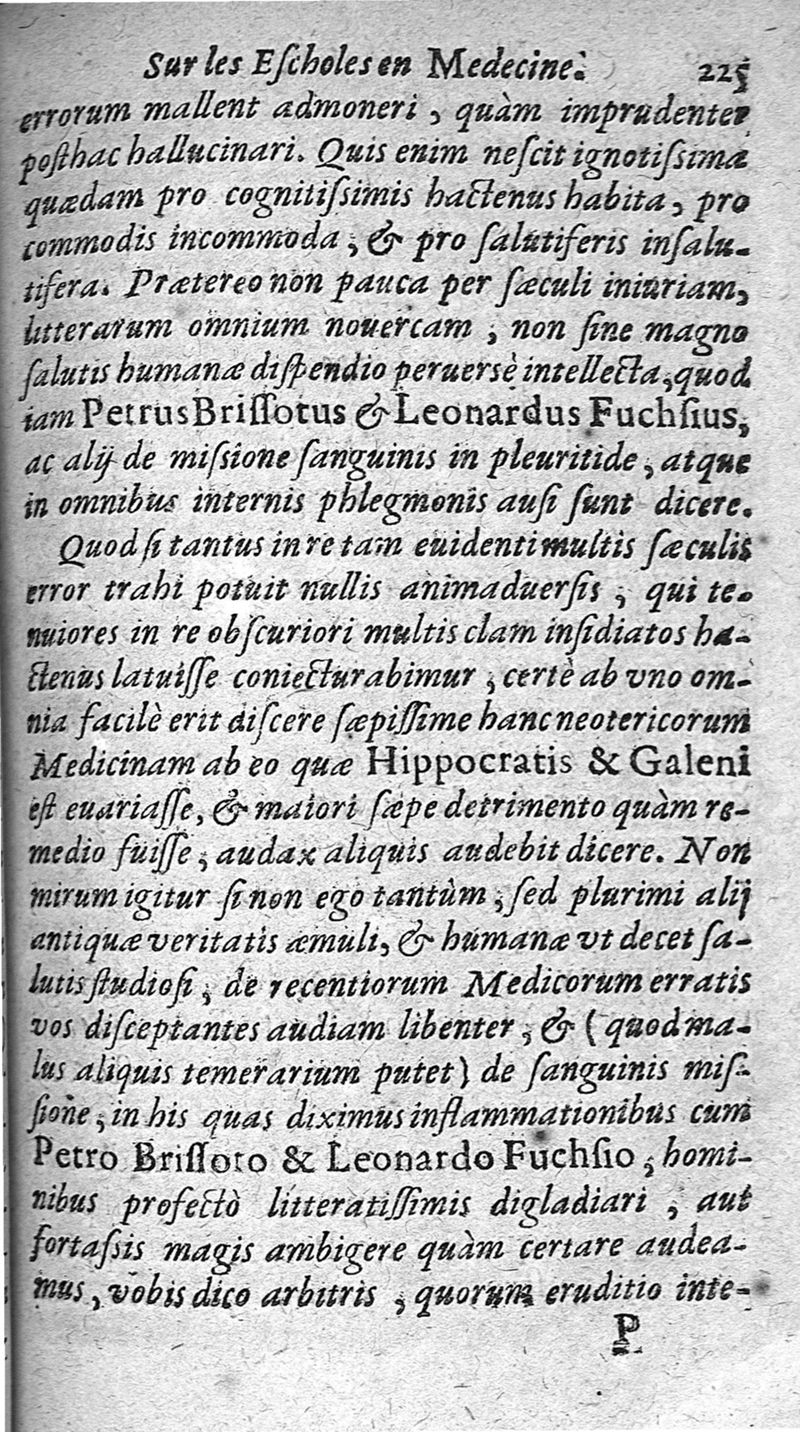 Sur les Eſcholes en Medecine. 225
errorum mallent admoneri, quàm imprudenter
poſthac hallucinari. Quis enim neſcit ignotiſsima
quædam pro cognitiſsimis hactenus habita, pro
commodis incommoda, & pro ſalutiferis inſalu-
tifera. Prætereo non pauca per ſæculi iniuriam,
litterarum omnium nouercam, non ſine magno
ſalutis humanæ diſpendio peruersè intellecta, quod
iam Petrus Briſſotus & Leonardus Fuchſius,
ac alij de miſsione ſanguinis in pleuritide, atque
in omnibus internis phlegmonis auſi ſunt dicere.
Quod ſi tantus in re tam euidenti multis ſæculis
error trahi potuit nullis animaduerſis, qui te-
nuiores in re obſcuriori multis clam inſidiatos ha-
ctenus latuiſſe coniecturabimur, certè ab vno om-
nia facilè erit diſcere ſæpiſſime hanc neotericorum
Medicinam ab eo quæ Hippocratis & Galeni
eſt euariaſſe, & maiori ſæpe detrimento quàm re-
medio fuiſſe, audax aliquis audebit dicere. Non
mirum igitur ſi non ego tantùm, ſed plurimi alij
antiquæ veritatis æmuli, & humanæ vt decet ſa-
lutis ſtudioſi, de recentiorum Medicorum erratis
vos diſceptantes audiam libenter, & (quod ma-
lus aliquis temerarium putet) de ſanguinis miſ-
ſione, in his quas diximus inflammationibus cum
Petro Briſſoto & Leonardo Fuchſio, homi-
nibus profectò litteratiſſimis digladiari, aut
fortaſsis magis ambigere quàm certare audea-
mus, vobis dico arbitris, quorum eruditio inte-
P